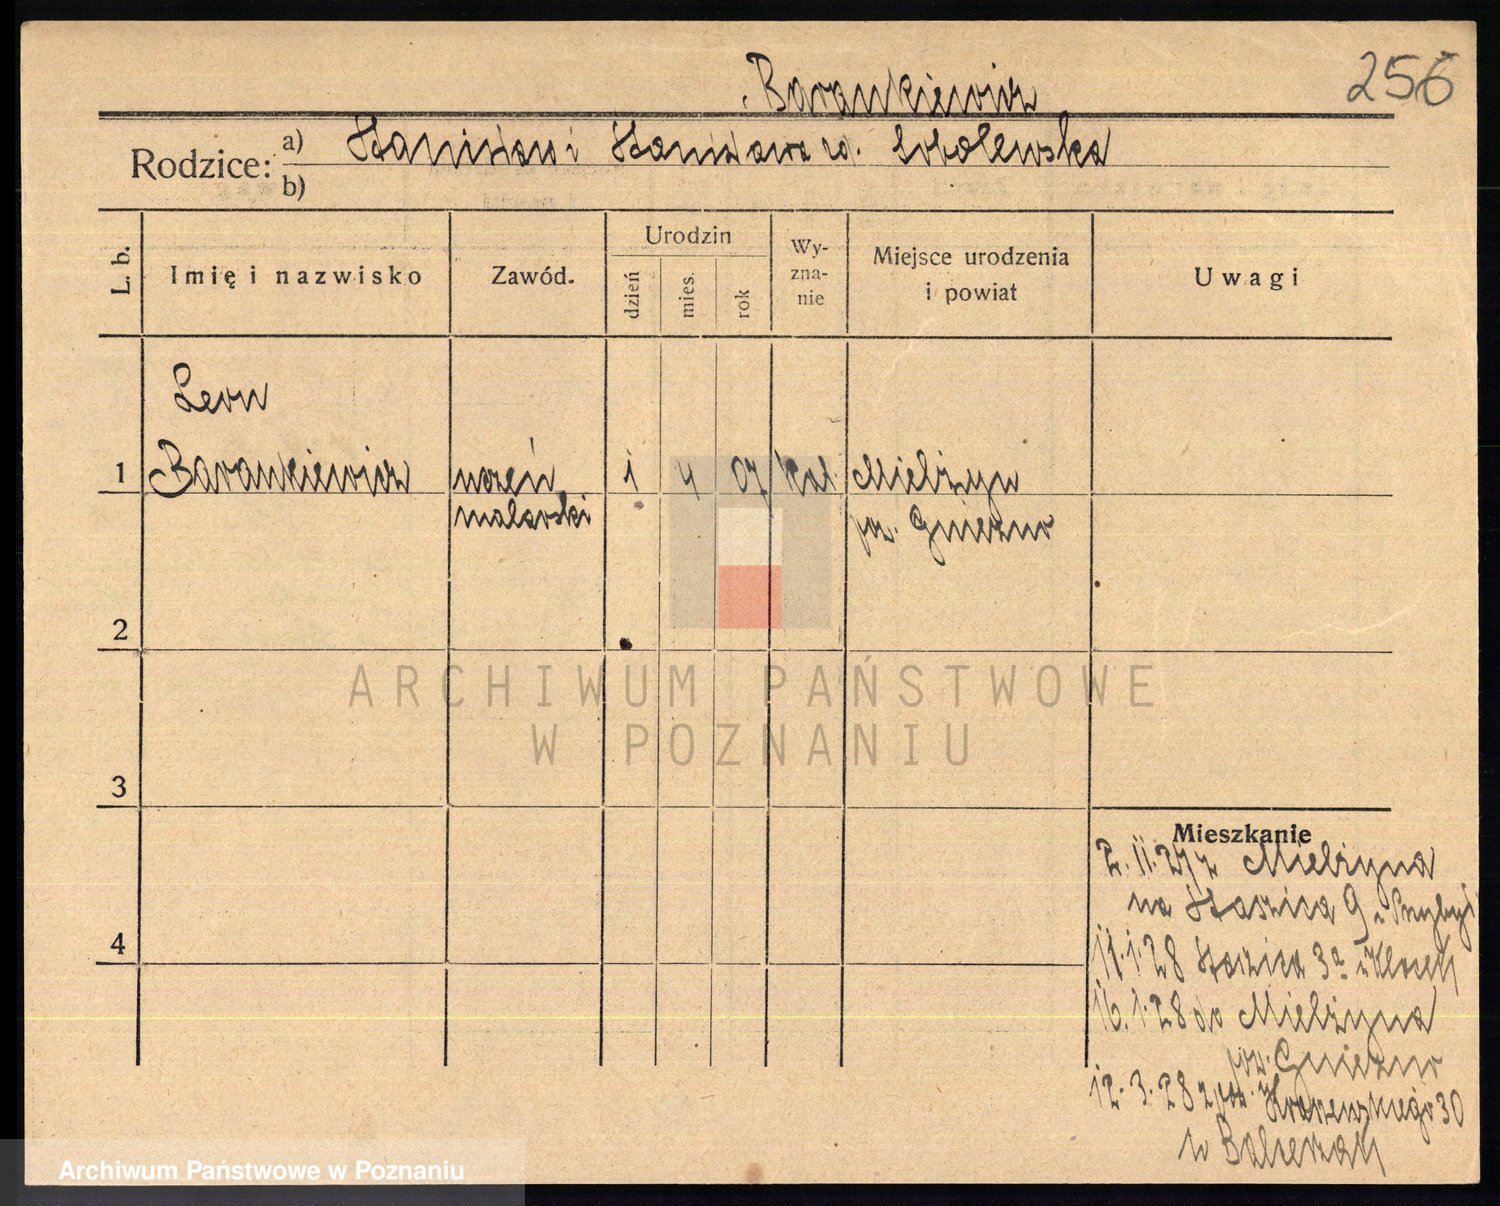 256
Barankiewicz
Rodzice: a) Stanisław i Stanisława zd. Sobolewska
b)
L. b.
Imię i nazwisko
Zawód.
Urodzin
dzień
mies.
rok
Wy-
zna-
nie
Miejsce urodzenia
i powiat
Uwagi
Leon
1 Barankiewicz uczeń 1 4 07 kat. Mielżyn
malarski pow. Gniezno
2
3
4
ARCHIWUM PAŃSTWOWE
W POZNANIU
Mieszkanie
2. 11. 27 z Mielżyna
na Staszica 9 u
11. 1. 28 Staszica 3a u
16. 1. 28 do Mielżyna
pow. Gniezno
12. 3. 28 z pow. Kraszewskiego 30
u
Archiwum Państwowe w Poznaniu